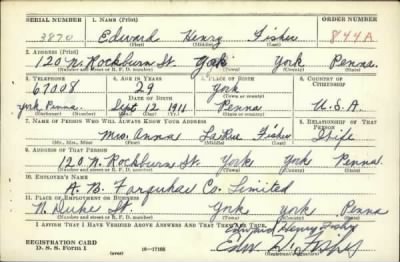 SERIAL NUMBER 1. NAME (Print) ORDER NUMBER
3870 Edward Henry Fisher 844A
(First) (Middle) (Last)
2. ADDRESS (Print)
120 N. Rockburn St. York York Penna.
(Number and street or R. F. D. number) (Town) (County) (State)
3. TELEPHONE 4. AGE IN YEARS 5. PLACE OF BIRTH 6. COUNTRY OF CITIZENSHIP
67008 29 York
DATE OF BIRTH (Town or county)
York Penna. Sept. 12 1911 Penna U.S.A.
(Exchange) (Number) (Mo.) (Day) (Yr.) (State or country)
7. NAME OF PERSON WHO WILL ALWAYS KNOW YOUR ADDRESS 8. RELATIONSHIP OF THAT PERSON
Mrs. Anna Fisher Wife
(Mr., Mrs., Miss) (First) (Middle) (Last)
9. ADDRESS OF THAT PERSON
120 N. Rockburn St. York York Penna.
(Number and street or R. F. D. number) (Town) (County) (State)
10. EMPLOYER'S NAME
A. B. Farquhar Co. Limited
11. PLACE OF EMPLOYMENT OR BUSINESS
N. Duke St. York York Penna
(Number and street or R. F. D. number) (Town) (County) (State)
I AFFIRM THAT I HAVE VERIFIED ABOVE ANSWERS AND THAT THEY ARE TRUE.
Edward Henry Fisher
REGISTRATION CARD
D. S. S. Form 1 16—17105